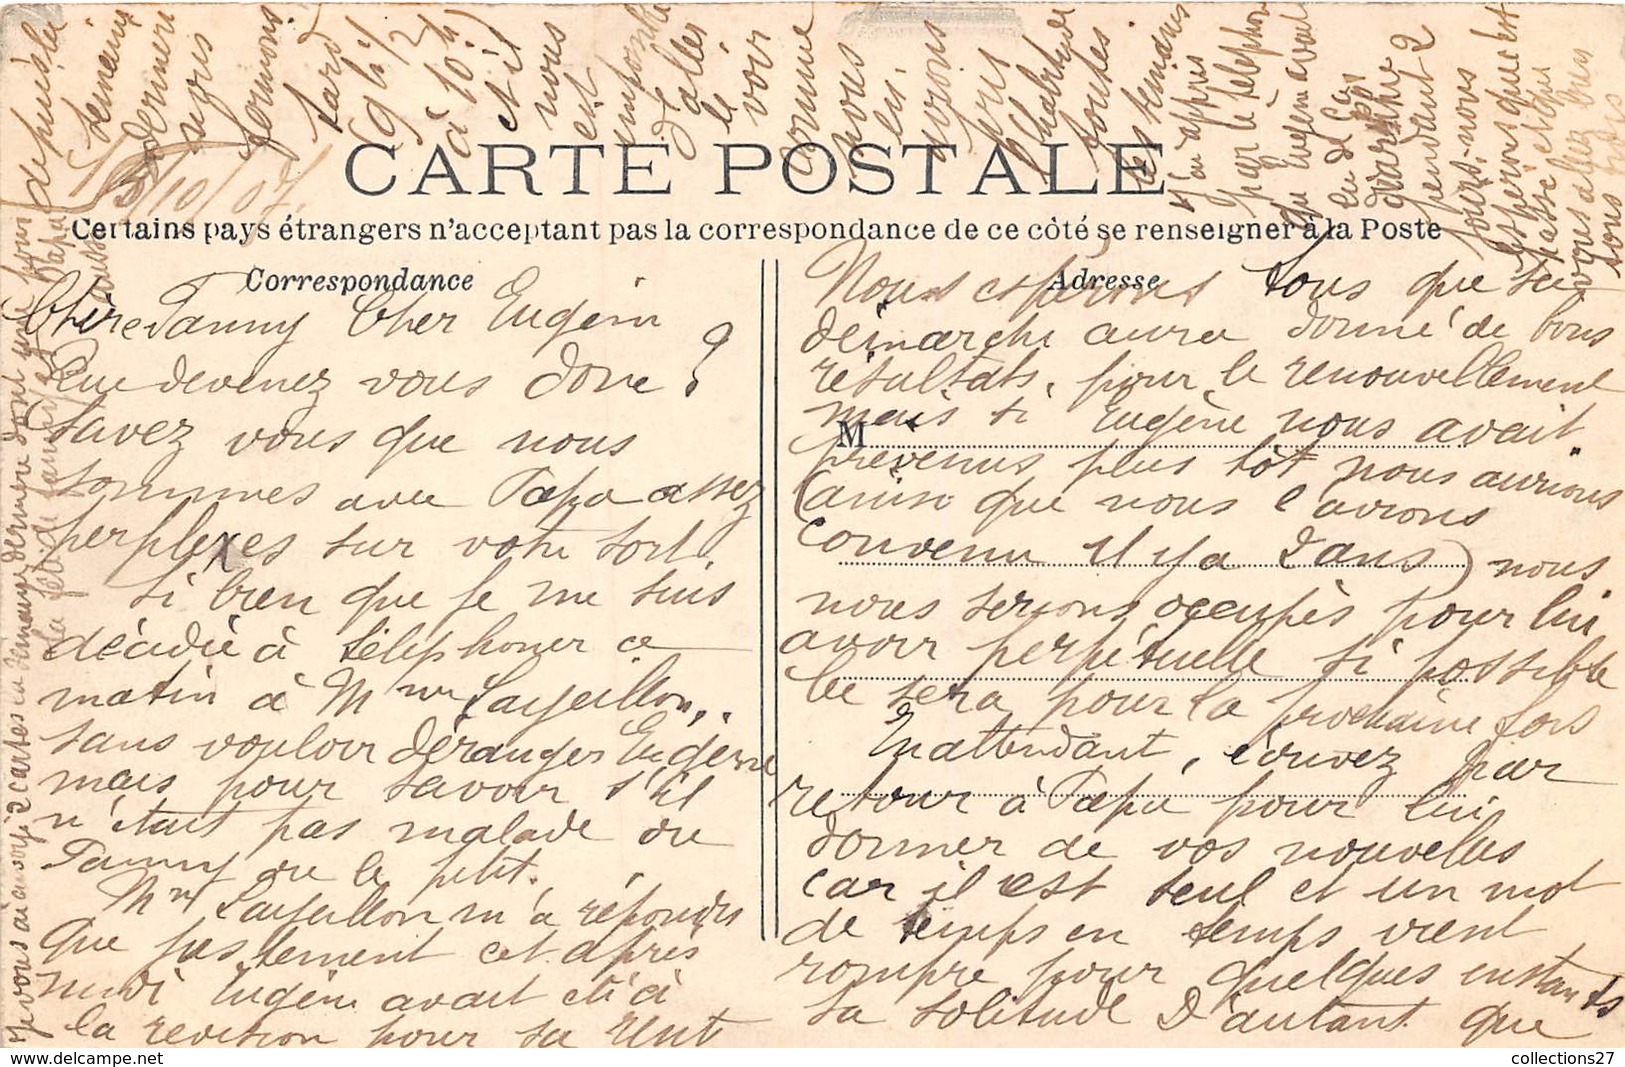 CARTE POSTALE
Certains pays étrangers n'acceptent pas la correspondance de ce côté se renseigner à la Poste
Correspondance
Adresse
M
5/10/07.
Chère Fanny Cher Eugène
Que devenez vous donc ?
Savez vous que nous
sommes avec Papa assez
perplexes sur votre sort.
Si bien que je me suis
décidée à téléphoner ce
matin à Mme
sans vouloir déranger Eugène
mais pour savoir s'il
n'était pas malade ou
Fanny ou le petit.
Mme m'a répondu
que justement cet après
midi Eugène avait été à
la révision pour sa rente
Nous espérons tous que sa
démarche aura donné de bons
résultats, pour le renouvellement
mais si Eugène nous avait
prévenus plus tôt nous aurions
(ainsi que nous l'avions
convenu il y a 2 ans) nous
nous serions occupés pour lui
avoir perpétuelle si possible
Ce sera pour la prochaine fois
En attendant, écrivez par
retour à Papa pour lui
donner de vos nouvelles
car il est seul et un mot
de temps en temps vient
rompre pour quelques instants
sa solitude D'autant que
depuis la
semaine
dernière
nous
fermons
tard
(9h½
à 10h)
et il
nous
est
d'aller
le
voir
comme
nous
avions
pris
l'habitude
toutes
les semaines
J'ai appris
par le téléphone
qu'Eugène avait
eu de la
pendant 2
jours. nous
espérons que c'est
passé et que
vous allez bien
tous trois
Je vous ai envoyé 2 cartes la semaine dernière dont une pour
la fête de Fanny et Papa